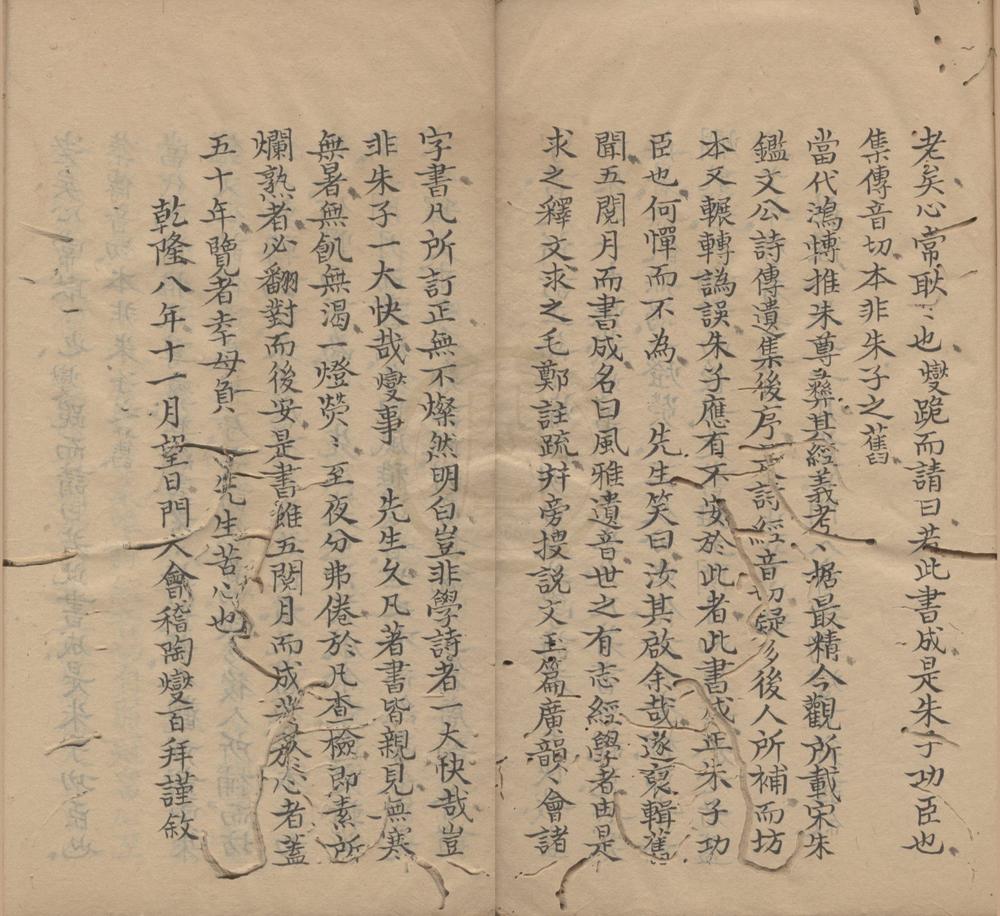 老矣心常耿〻也燮跪而請曰若此書成是朱子功臣也
集傳音切本非朱子之舊
當代鴻博推朱尊彝其經義考考據最精今觀所載宋朱
鑑文公詩傳遺集後序言詩經音切疑多後人所補而坊
本又輾轉譌誤朱子應有不安於此者此書成正朱子功
臣也何憚而不為　先生笑曰汝其啟余哉遂裒輯舊
聞五閱月而書成名曰風雅遺音世之有志經學者由是
求之釋文求之毛鄭註疏并旁搜說文玉篇廣韻會諸
字書凡所訂正無不燦然明白豈非學詩者一大快哉豈
非朱子一大快哉燮事　先生久凡著書皆親見無寒
無暑無飢無渴一燈熒〻至夜分弗倦於凡查檢即素所
爛熟者必翻對而後安是書雖五閱月而成其殺心者蓋
五十年覽者幸毋負　先生苦心也
乾隆八年十一月望日門人會稽陶燮百拜謹敘